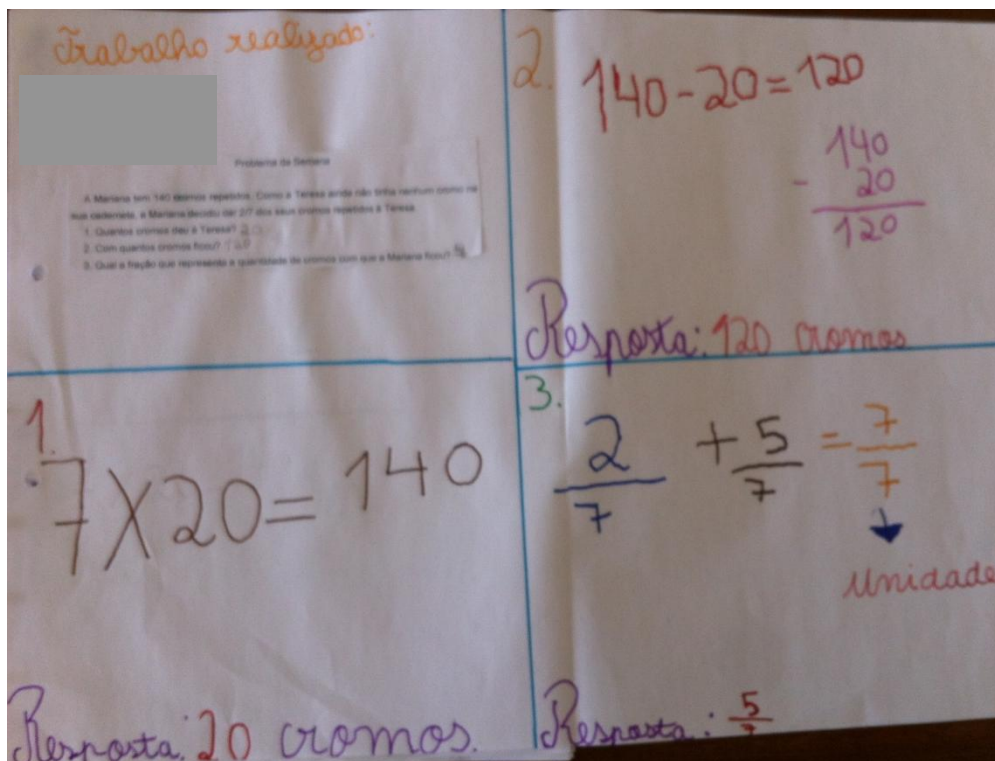 Trabalho realizado:
Problema da Semana
A Mariana tem 140 cromos repetidos. Como a Teresa ainda não tinha nenhum cromo na
sua caderneta, a Mariana decidiu dar 2/7 dos seus cromos repetidos à Teresa.
1. Quantos cromos deu à Teresa? 20
2. Com quantos cromos ficou? 120
3. Qual a fração que representa a quantidade de cromos com que a Mariana ficou?
1.
7X20=140
Resposta: 20 cromos.
2. 140-20=120
140
- 20
120
Resposta: 120 cromos
3.
2/7 + 5/7 = 7/7
Unidade
Resposta: 5/7